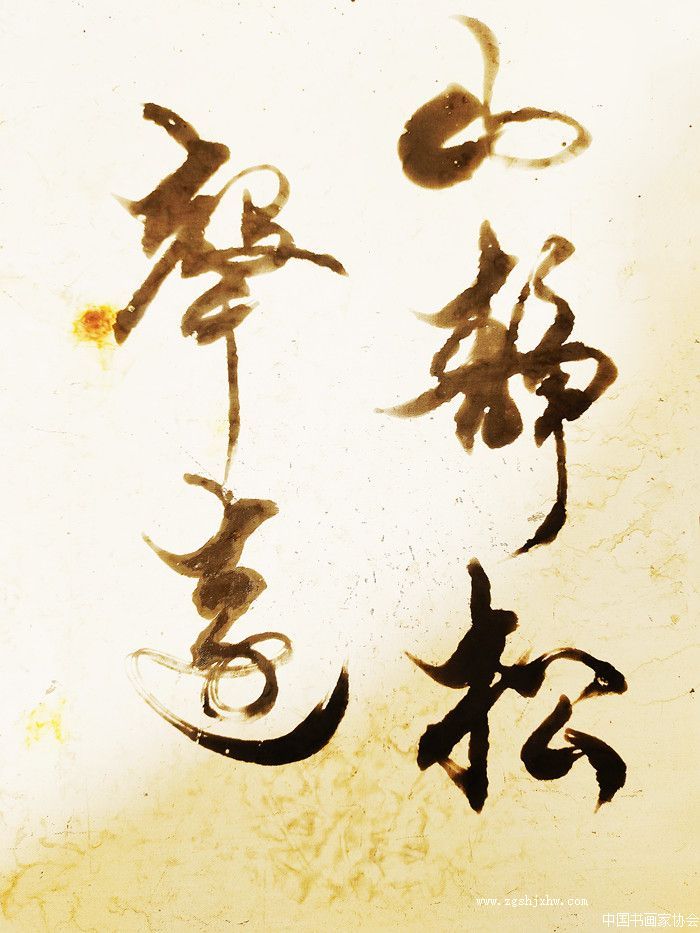 山靜松
聲遠
www.zgshjxhw.com
中国书画家协会